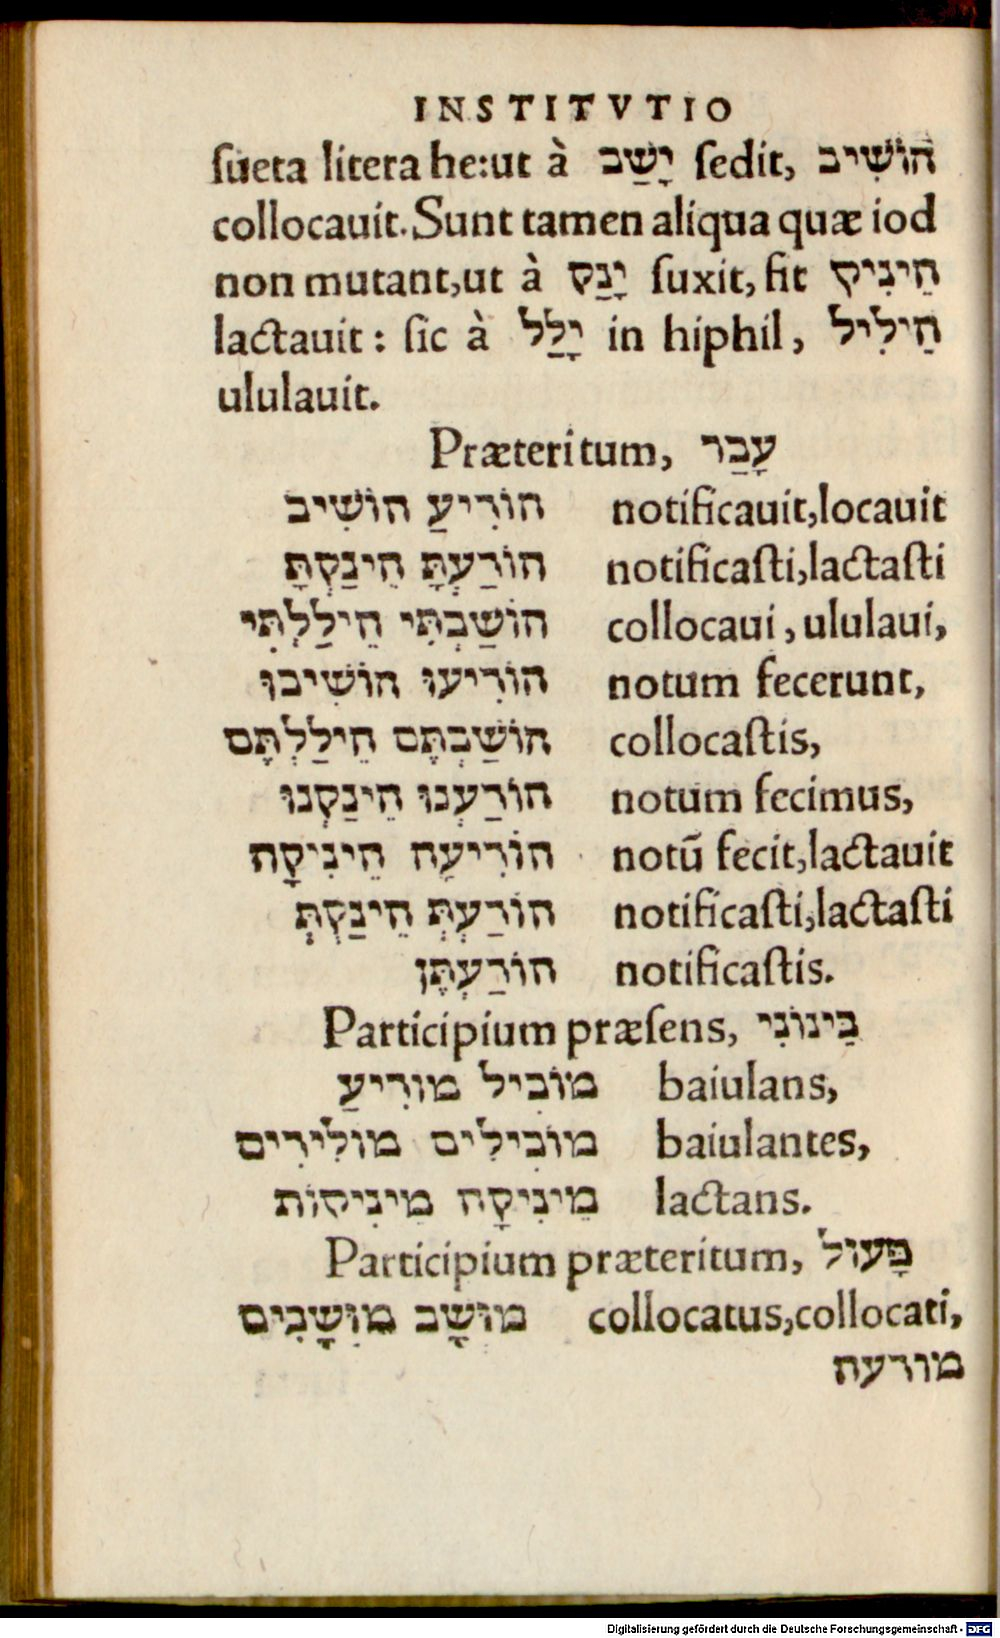 INSTITVTIO
ſueta litera he:ut à יָשַׁב ſedit, הוֹשִׁיב
collocauit. Sunt tamen aliqua quæ iod
non mutant,ut à יָנַק ſuxit, fit הֵינִיק
lactauit: ſic à יָלַל in hiphil, הֵילִיל
ululauit.
Præteritum, עָבַר
הוֹדִיעַ הוֹשִׁיב notificauit,locauit
הוֹדַעְתָּ הֵינַקְתָּ notificaſti,lactaſti
הוֹשַׁבְתִּי הֵילַלְתִּי collocaui, ululaui,
הוֹדִיעוּ הוֹשִׁיבוּ notum fecerunt,
הוֹשַׁבְתֶּם הֵילַלְתֶּם collocaſtis,
הוֹדַעְנוּ הֵינַקְנוּ notum fecimus,
הוֹדִיעָה הֵינִיקָה notū fecit,lactauit
הוֹדַעְתְּ הֵינַקְתְּ notificaſti,lactaſti
הוֹדַעְתֶּן notificaſtis.
Participium præſens, בֵּינוֹנִי
מוֹבִיל מוֹדִיעַ baiulans,
מוֹבִילִים מוֹלִידִים baiulantes,
מֵינִיקָה מֵינִיקוֹת lactans.
Participium præteritum, פָּעוּל
מוּשָׁב מוּשָׁבִים collocatus,collocati,
מודעה
Digitalisierung gefördert durch die Deutsche Forschungsgemeinschaft - DFG